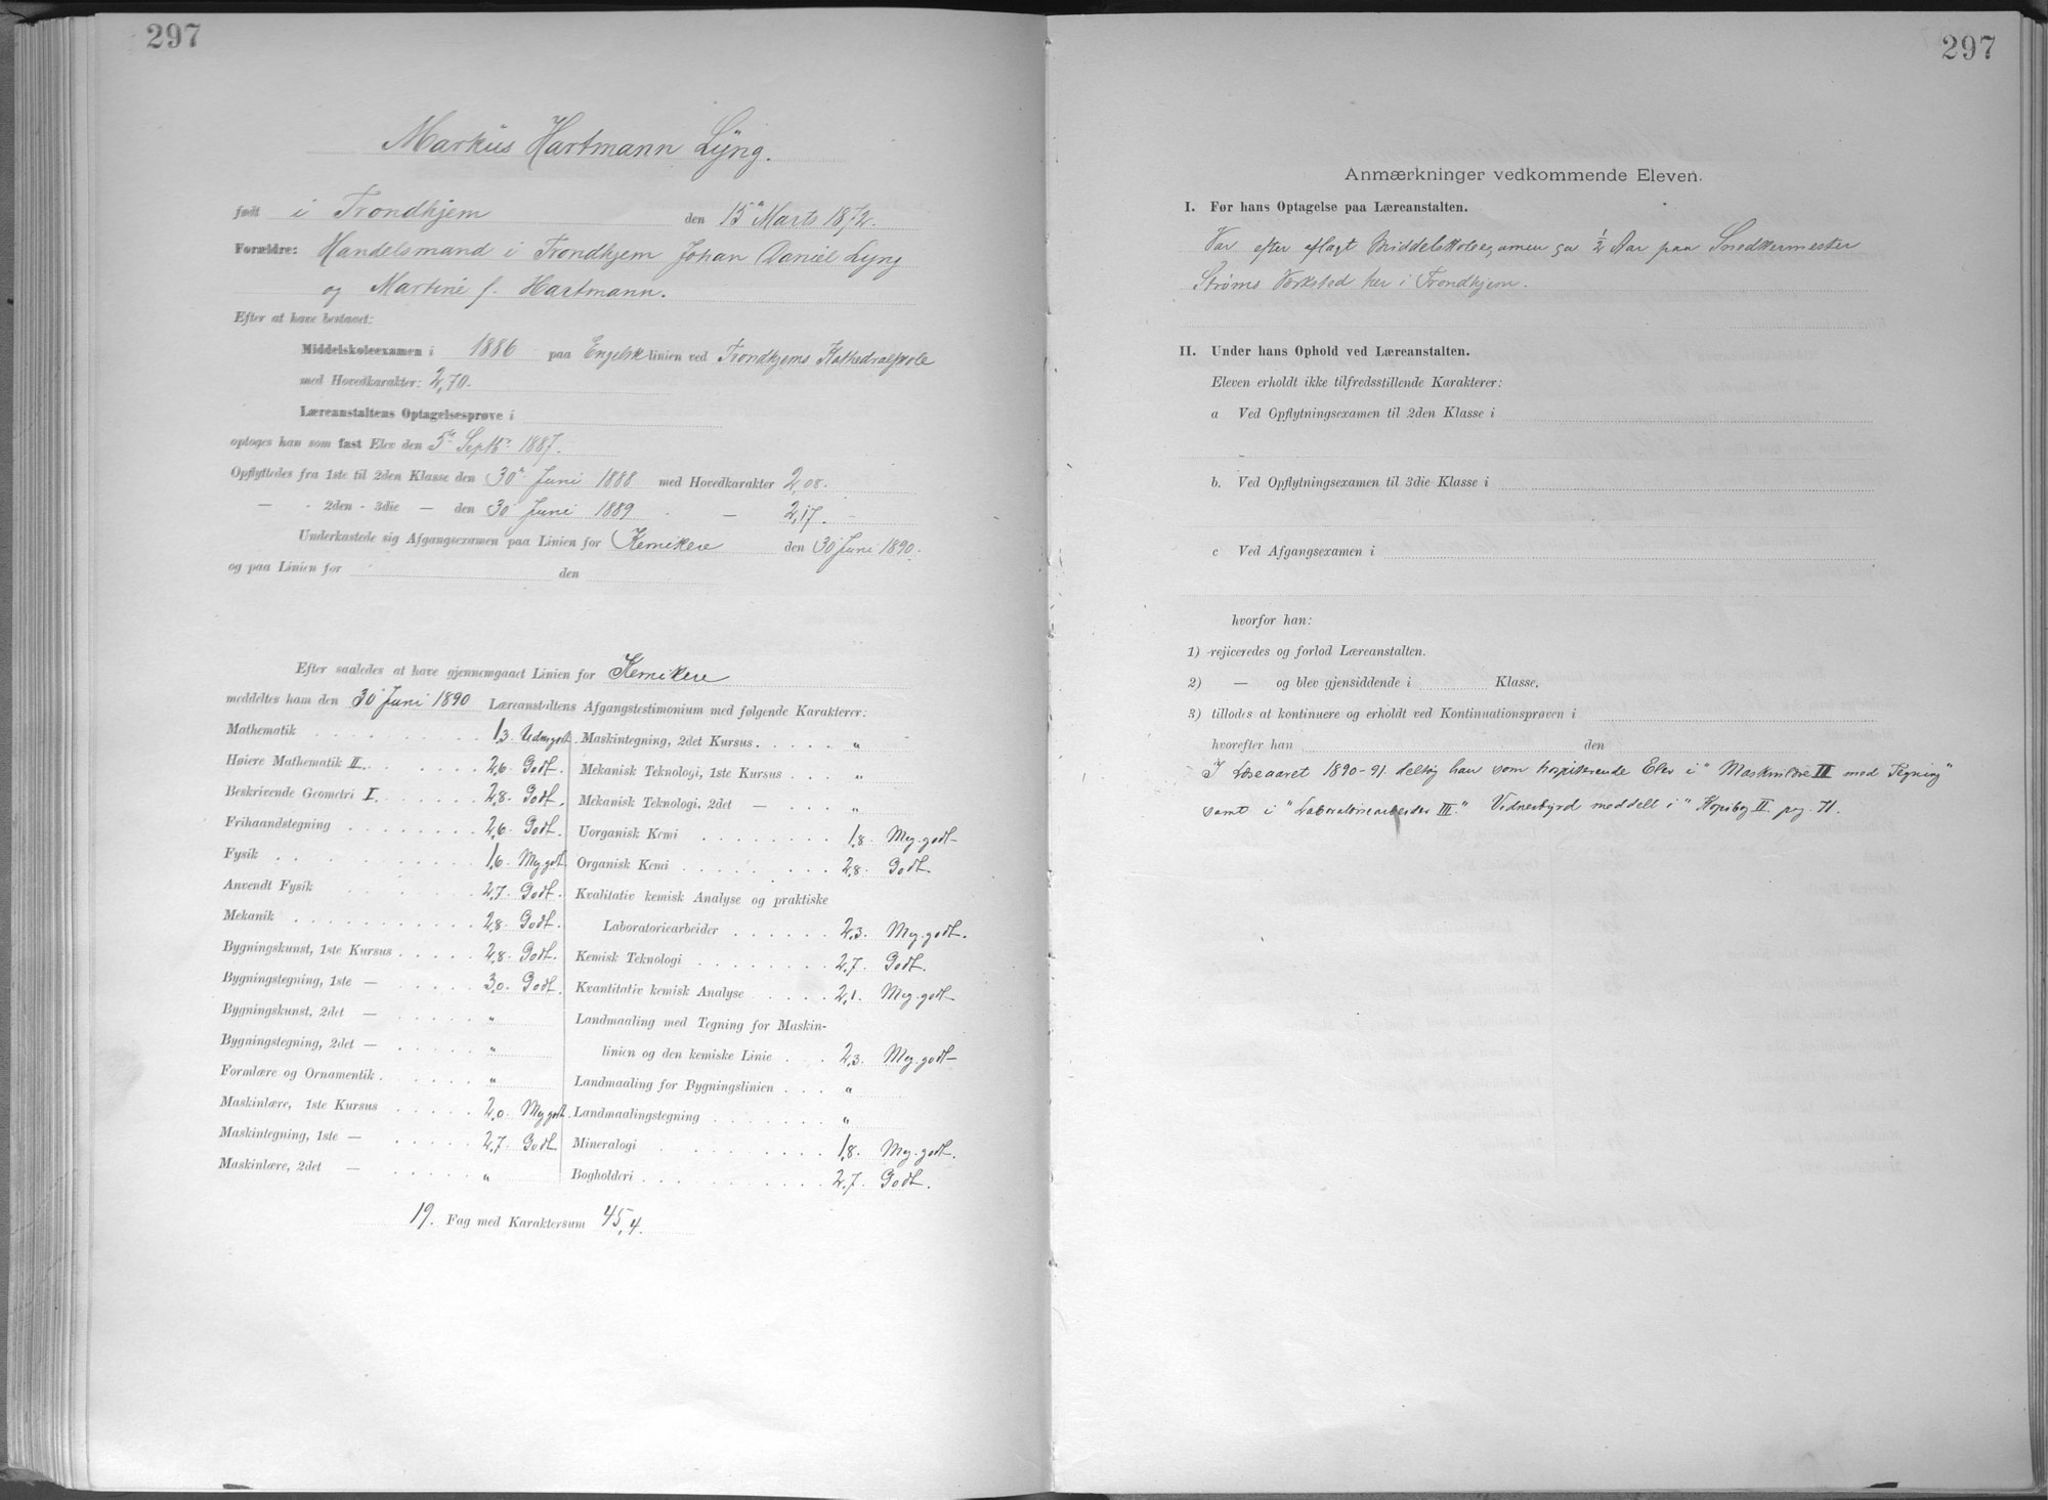 297
Markus Hartmann Lyng.
født i Trondhjem den 15de Marts 1872.
Forældre: Handelsmand i Trondhjem Johan Daniel Lyng
og Martine f. Hartmann.
Efter at have bestaaet:
Middelskoleexamen i 1886 paa Engelsk linien ved Trondhjems Kathedralskole
med Hovedkarakter: 2,70.
Læreanstaltens Optagelsesprøve i
optoges han som fast Elev den 5te Septbr 1887.
Opflyttedes fra 1ste til 2den Klasse den 30te Juni 1888 med Hovedkarakter 2,08.
— - 2den - 3die — den 30 Juni 1889 — 2,17.
Underkastede sig Afgangsexamen paa Linien for Kemikere den 30 Juni 1890.
og paa Linien for den
Efter saaledes at have gjennemgaaet Linien for Kemikere
meddeltes ham den 30 Juni 1890 Læreanstaltens Afgangstestimonium med følgende Karakterer:
Mathematik 1,3. Udm.godt.
Høiere Mathematik II. 2,6. Godt.
Beskrivende Geometri I 2,8. Godt.
Frihaandstegning 2,6. Godt.
Fysik 1,6. Meg.godt.
Anvendt Fysik 2,7. Godt.
Mekanik 2,8. Godt.
Bygningskunst, 1ste Kursus 2,8. Godt.
Bygningstegning, 1ste — 3,0. Godt.
Bygningskunst, 2det — "
Bygningstegning, 2det — "
Formlære og Ornamentik "
Maskinlære, 1ste Kursus 2,0. Meg.godt.
Maskintegning, 1ste — 2,7. Godt.
Maskinlære, 2det — "
Maskintegning, 2det Kursus "
Mekanisk Teknologi, 1ste Kursus "
Mekanisk Teknologi, 2det — "
Uorganisk Kemi 1,8. Meg.godt
Organisk Kemi 2,8. Godt.
Kvalitativ kemisk Analyse og praktiske
Laboratoriearbeider 2,3. Meg.godt.
Kemisk Teknologi 2,7. Godt.
Kvantitativ kemisk Analyse 2,1. Meg.godt
Landmaaling med Tegning for Maskin-
linien og den kemiske Linie 2,3. Meg.godt
Landmaaling for Bygningslinien "
Landmaalingstegning "
Mineralogi 1,8. Meg.godt.
Bogholderi 2,7. Godt.
19. Fag med Karaktersum 45,4.
297
Anmærkninger vedkommende Eleven.
I. Før hans Optagelse paa Læreanstalten.
Var efter aflagt Middelskoleexamen ca 1/2 Aar paa Snedkermester
Strøms Værksted her i Trondhjem.
II. Under hans Ophold ved Læreanstalten.
Eleven erholdt ikke tilfredsstillende Karakterer:
a Ved Opflytningsexamen til 2den Klasse i
b. Ved Opflytningsexamen til 3die Klasse i
c Ved Afgangsexamen i
hvorfor han:
1) rejiceredes og forlod Læreanstalten.
2) — og blev gjensiddende i Klasse.
3) tillodes at kontinuere og erholdt ved Kontinuationsprøven i
hvorefter han den
I Læreaaret 1890-91 deltog han som hospiterende Elev i "Maskinlære II med Tegning"
samt i "Laboratoriearbeider III." Vidnesbyrd meddelt i "Kopibog II. pag. 71.